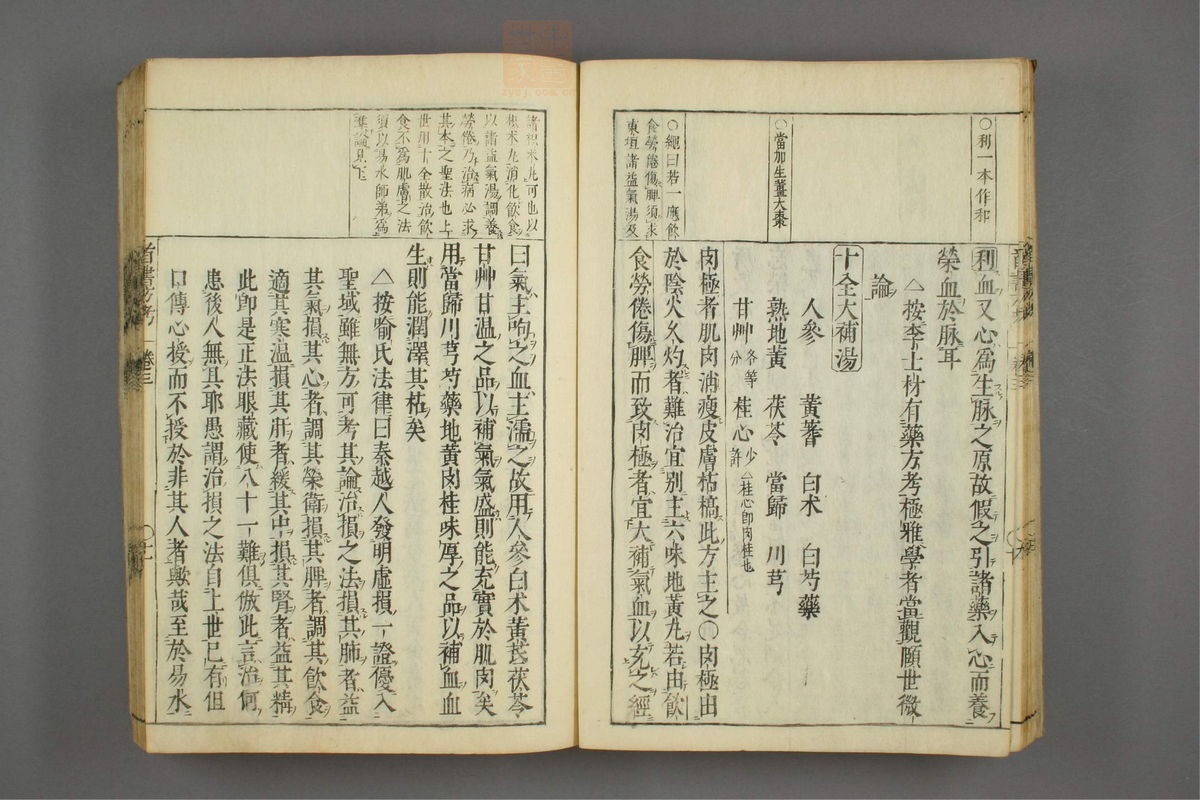 ○利一本作和
○當加生薑大棗
○繩曰若一應飲
食勞倦傷脾須求
東垣諸益氣湯及
利血又心爲生脉之原故假之引諸藥入心而養
榮血於脉耳
△按李士材有藥方考極雅學者當觀願世微
論
十全大補湯
人參 黃蓍 白术 白芍藥
熟地黃 茯苓 當歸 川芎
甘艸各等分 桂心少許△桂心即肉桂也
肉極者肌肉消瘦皮膚枯槁此方主之○肉極由
於陰火久灼者難治宜別主六味地黃丸若由飲
食勞倦傷脾而致肉極者宜大補氣血以充之經
諸枳术丸可也以
枳术丸消化飲食
以諸益氣湯調養
勞倦乃治病必求
其本之聖法也上
世用十全散治飲
食不爲肌膚之法
須以易水師弟爲
準論見下
曰氣主呴之血主濡之故用人參白术黃芪茯苓
甘艸甘温之品以補氣氣盛則能充實於肌肉矣
用當歸川芎芍藥地黃肉桂味厚之品以補血血
生則能潤澤其枯矣
△按喻氏法律曰秦越人發明虛損一證優入
聖域雖無方可考其論治損之法損其肺者益
其氣損其心者調其榮衛損其脾者調其飲食
適其寒温損其肝者緩其中損其腎者益其精
此即是正法眼藏使八十一難俱倣此言治何
患後人無具耶愚謂治損之法自上世已有但
口傳心授而不授於非其人者歟哉至於易水
首書方考 卷三